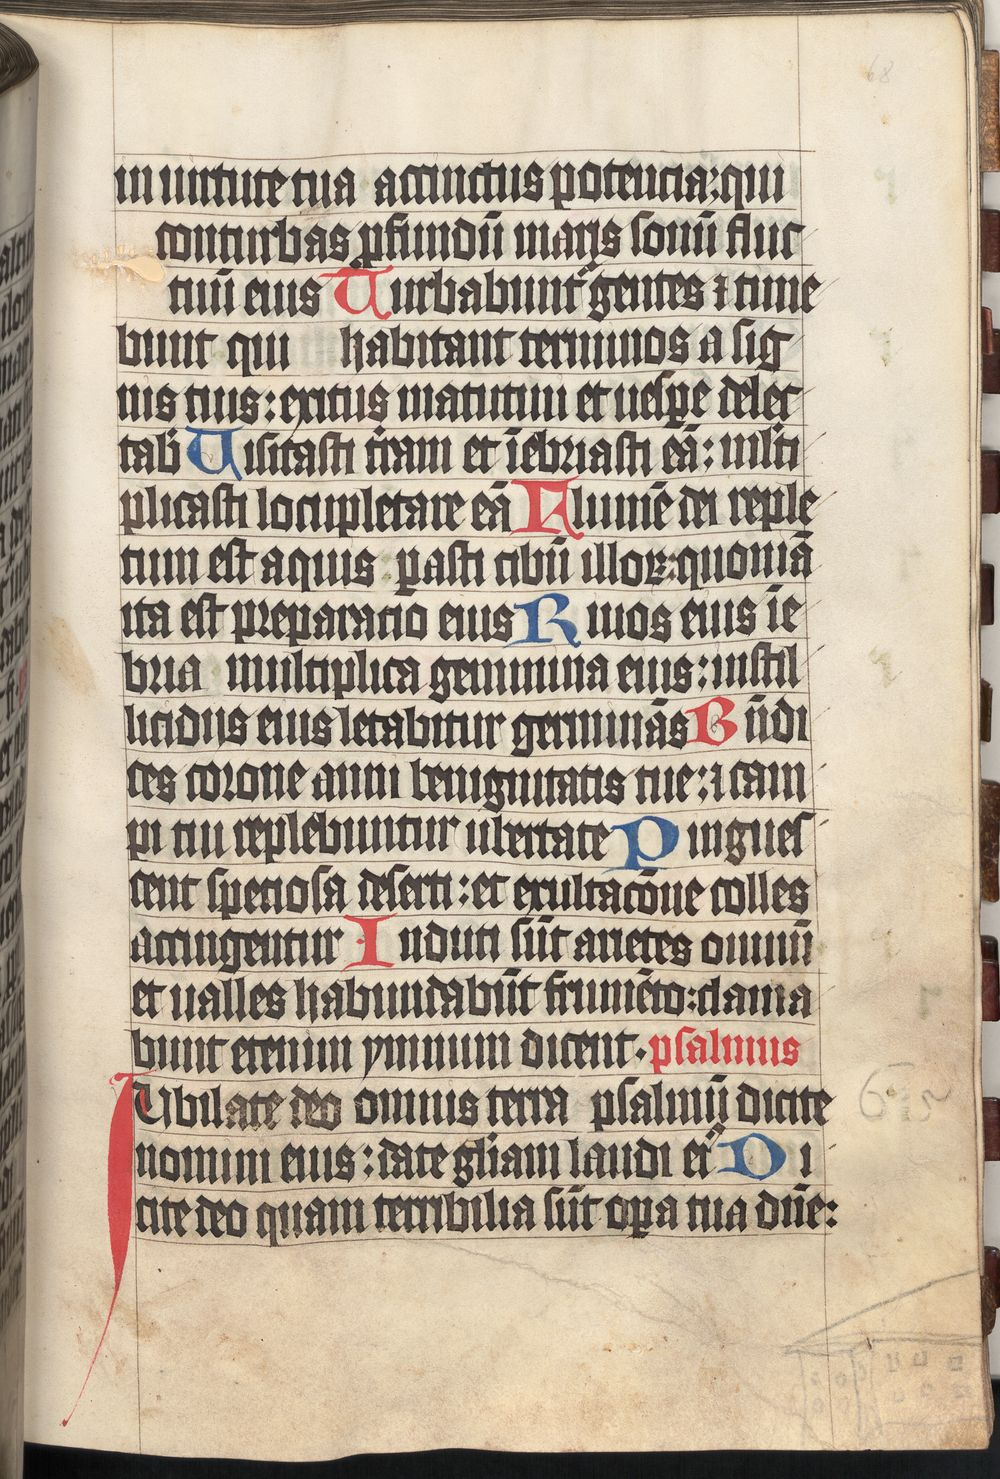 68
in uirtute tua accinctus potencia: qui
conturbas ꝓfundū maris sonū fluc
tuū eius Turbabunt᷑ gentes ⁊ time
bunt qui habitant terminos a sig
nis tuis: exitus matutini et uespe delec
tab̄ Uisitasti t̄ram et īebriasti eā: ml̄ti
plicasti locupletare eā Flumē dei reple
tum est aquis parasti cibū illoꝝ: quoniā
ita est preparatio eius Riuos eius īe
bria multiplica genimina eius: in stil
licidijs eius letabitur germinās Bn̄di
ces corone anni benignitatis tue: ⁊ cam
pi tui replebuntur ubertate Pingues
cent speciosa deserti: et exultacōne colles
accingentur Induti sūt arietes ouiuū
et ualles habundabūt frumēto: clama
bunt etenim ymnum dicent. psalmus
Iubilate deo omnis terra psalmū dicite
nomini eius: date gl̄iam laudi eiꝰ Di
cite deo quam terribilia sūt oꝑa tua dn̄e:
65